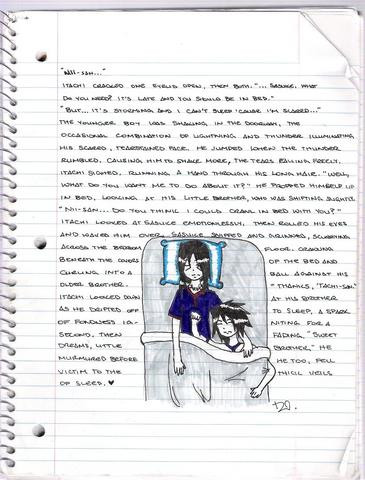 "NII-SAN..."
ITACHI CRACKED ONE EYELID OPEN, THEN BOTH. "... SASUKE, WHAT
DO YOU NEED? IT'S LATE AND YOU SHOULD BE IN BED."
"BUT... IT'S STORMING AND I CAN'T SLEEP 'CAUSE I'M SCARED..."
THE YOUNGER BOY WAS SHAKING IN THE DOORWAY, THE
OCCASIONAL COMBINATION OF LIGHTNING AND THUNDER ILLUMINATING
HIS SCARED, TEARSTAINED FACE. HE JUMPED WHEN THE THUNDER
RUMBLED, CAUSING HIM TO SHAKE MORE, THE TEARS FALLING FREELY.
ITACHI SIGHED, RUNNING A HAND THROUGH HIS LONG HAIR. "WELL,
WHAT DO YOU WANT ME TO DO ABOUT IT?" HE PROPPED HIMSELF UP
IN BED, LOOKING AT HIS LITTLE BROTHER, WHO WAS SHIFTING SLIGHTLY.
"NII-SAN... DO YOU THINK I COULD CRAWL IN BED WITH YOU?"
ITACHI LOOKED AT SASUKE EMOTIONLESSLY, THEN ROLLED HIS EYES
AND WAVED HIM OVER. SASUKE SNIFFED AND GRINNED, SCRAMBLING
ACROSS THE BEDROOM FLOOR. CRAWLING
BENEATH THE COVERS OF THE BED AND
CURLING INTO A BALL AGAINST HIS
OLDER BROTHER. "THANKS, 'TACHI-SAN."
ITACHI LOOKED DOWN AT HIS BROTHER
AS HE DRIFTED OFF TO SLEEP, A SPARK
OF FONDNESS IG- NITING FOR A
SECOND, THEN FADING. "SWEET
DREAMS, LITTLE BROTHER," HE
MURMURED BEFORE HE TOO, FELL
VICTIM TO THE THICK VEILS
OF SLEEP. ♥